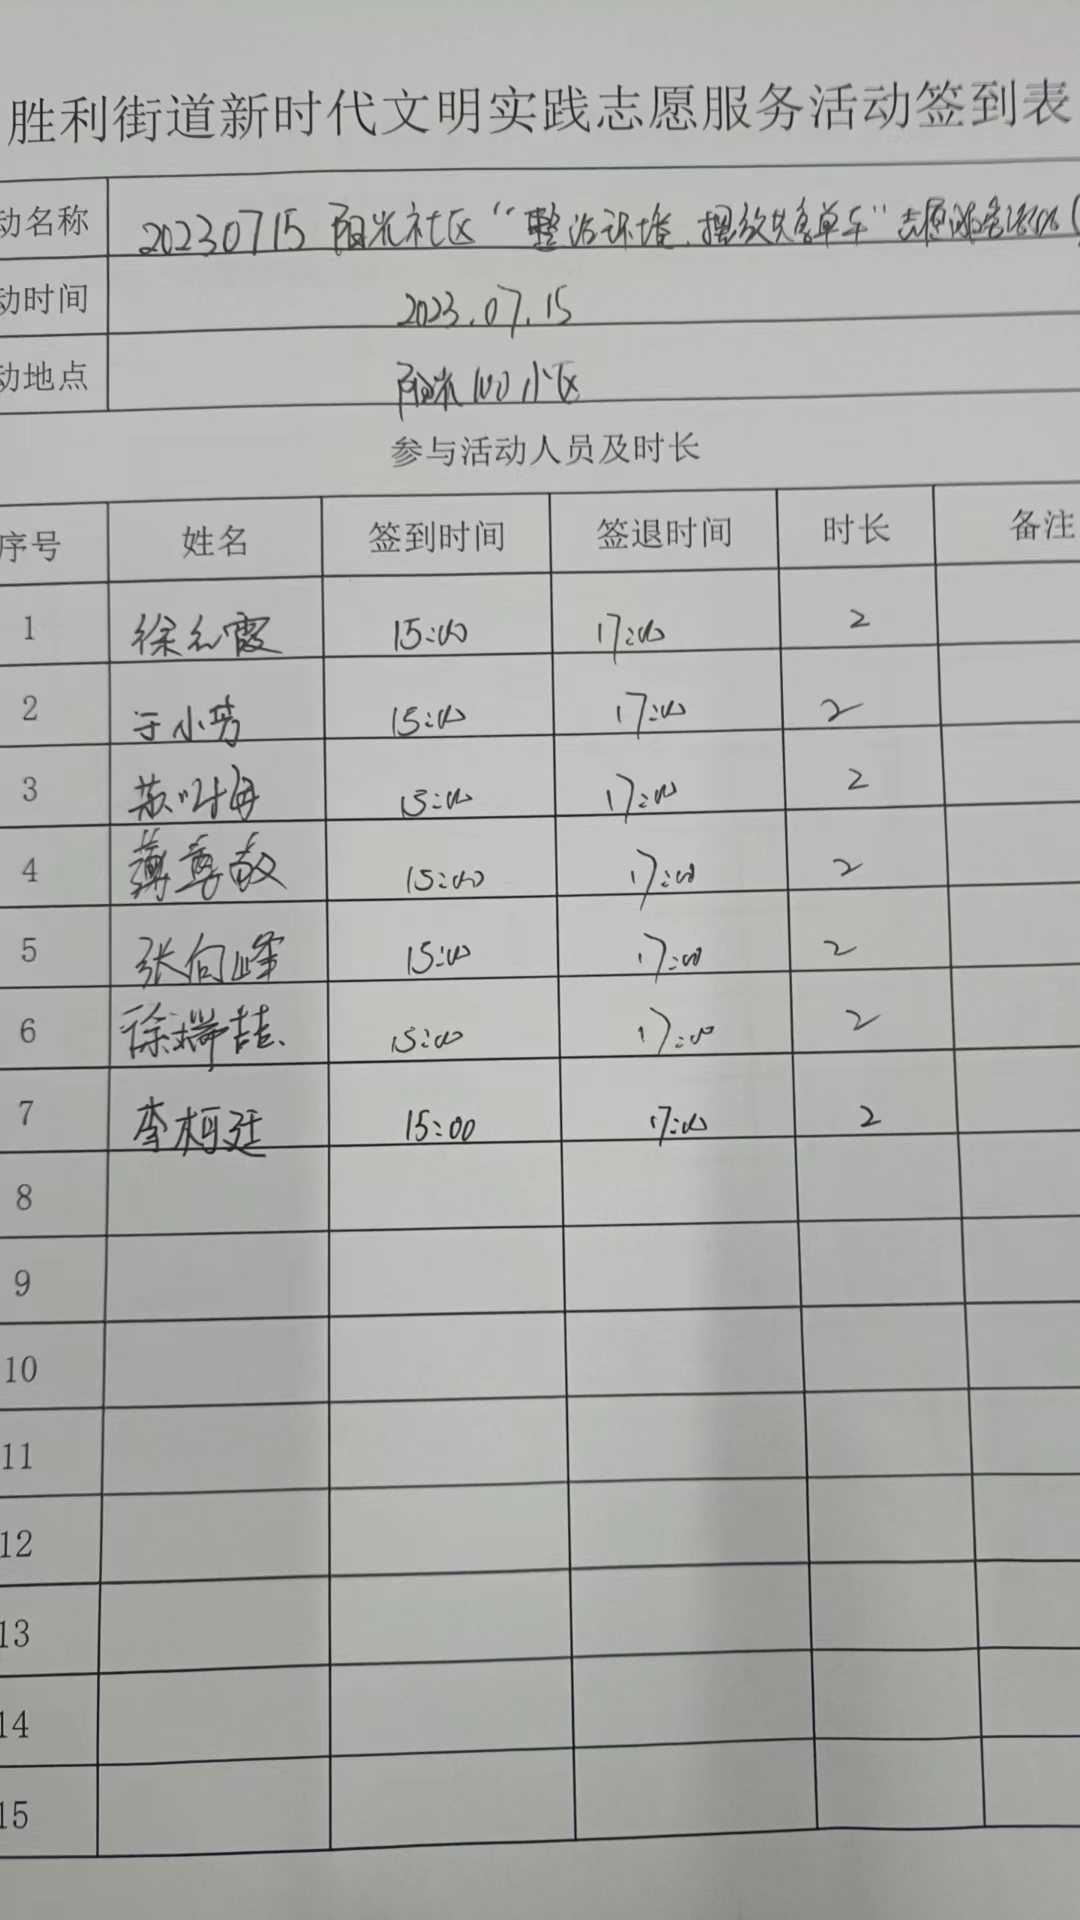 胜利街道新时代文明实践志愿服务活动签到表
动名称 20230715 阳光社区“整治环境、摆放共享单车”志愿服务活动(
动时间 2023.07.15
动地点 阳光100小区
参与活动人员及时长
序号 姓名 签到时间 签退时间 时长 备注
1 徐红霞 15:00 17:00 2
2 于小芳 15:00 17:00 2
3 苏 15:00 17:00 2
4 薄尊敬 15:00 17:00 2
5 张向峰 15:00 17:00 2
6 徐瑞喆 15:00 17:00 2
7 李柯廷 15:00 17:00 2
8
9
10
11
12
13
14
15